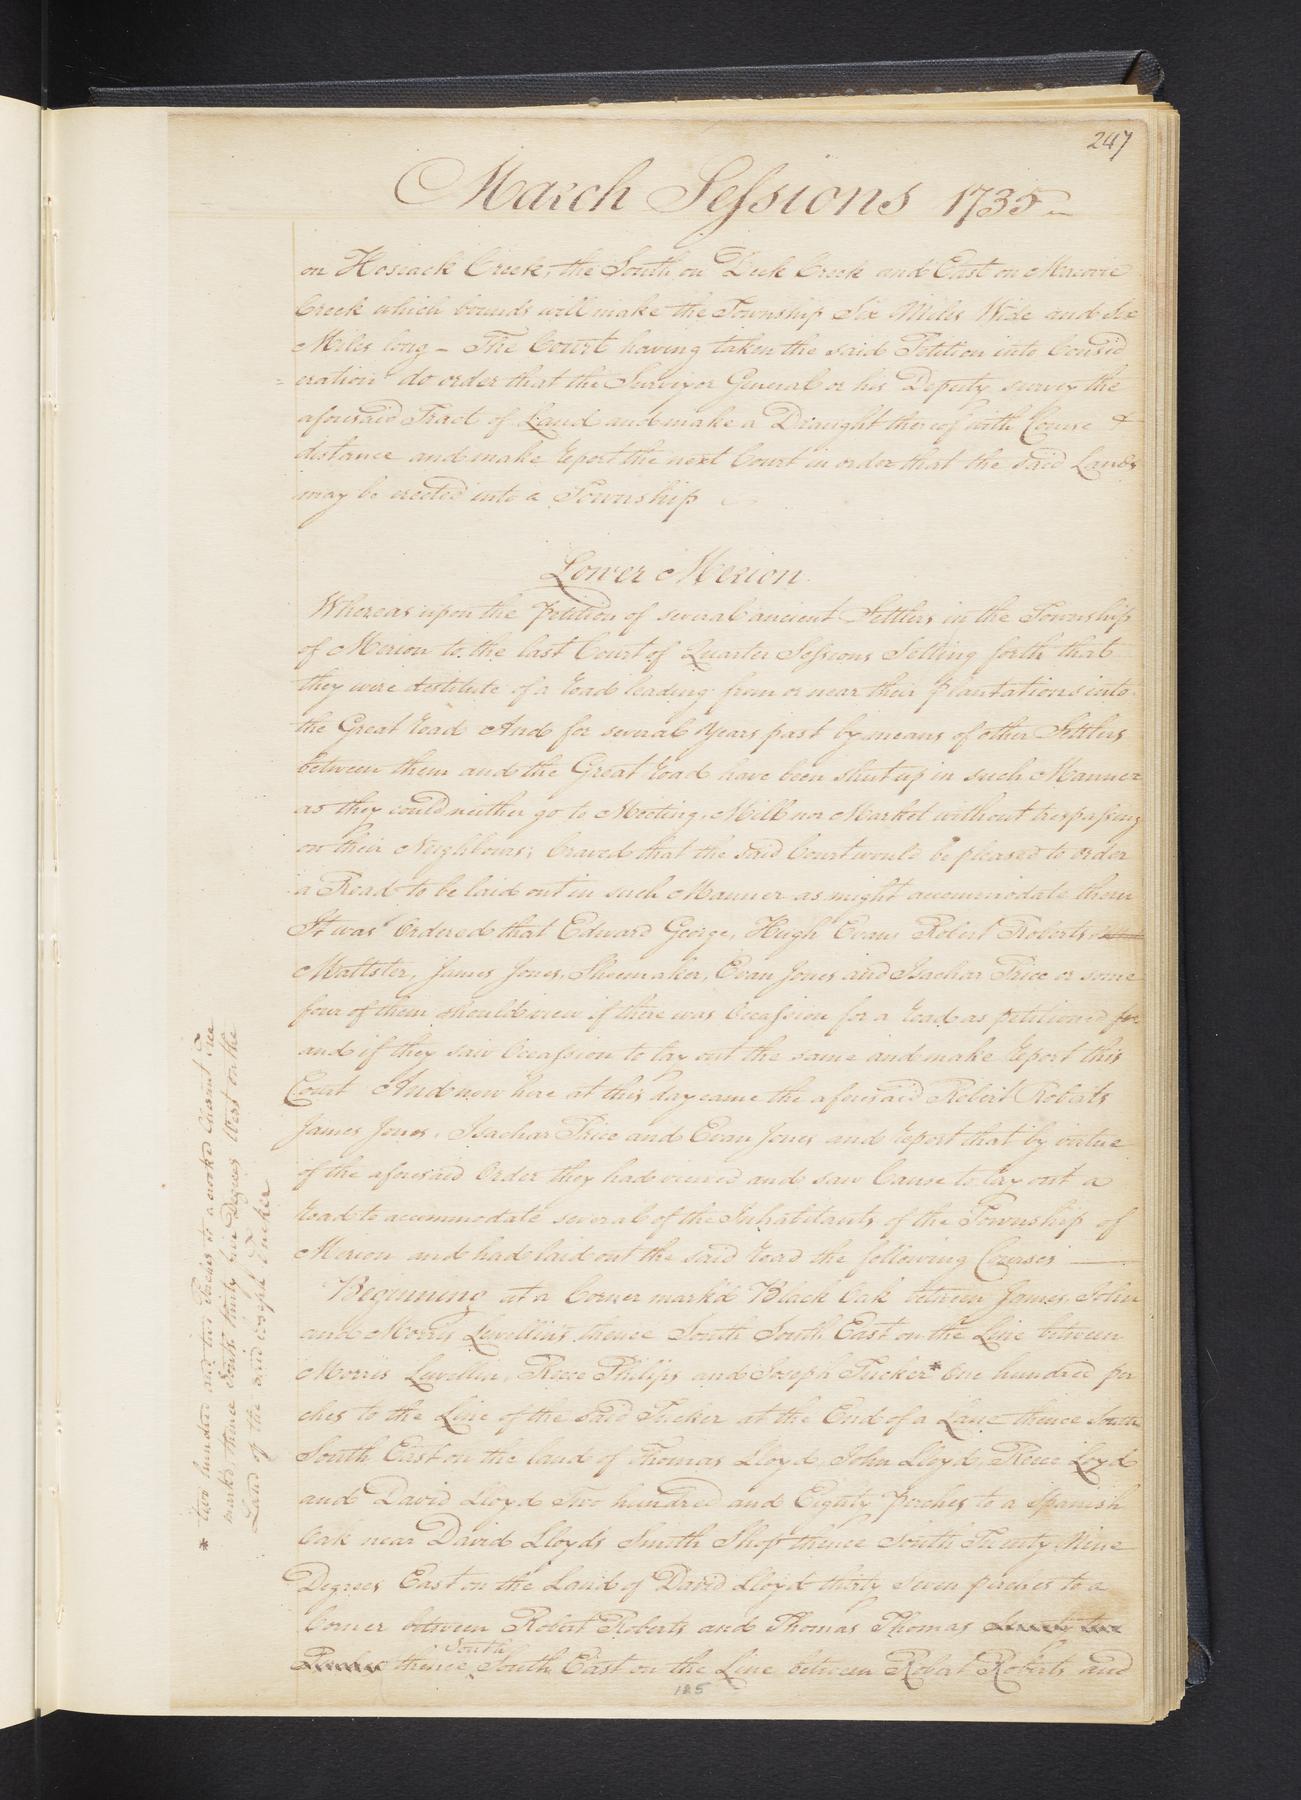 247
March Sessions 1735
on Hosiack Creek, the South on Deek Creek and East on Macovie
Creek which bounds will make the Township Six Miles Wide and Six
Miles long – The Court having taken the said Petition into Consid
=eration do order that the Surveyor General or his Deputy survey the
aforesaid Tract of Land and make a Draught thereof with Course &
distance and make report the next Court in order that the said Lands
may be erected into a Township
Lower Merion
Whereas upon the Petition of several ancient Settlers in the Township
of Merion to the last Court of Quarter Sessions Setting forth that
they were destitute of a road leading from or near their plantations into
the Great road And for several Years past by means of other Settlers
between them and the Great road have been shut up in such Manner
as they could neither go to Meeting, Mill nor Market without trespassing
on their Neighbours; Craved that the said Court would be pleased to order
a Road to be laid out in such Manner as might accommodate them
It was Ordered that Edward George, Hugh Evans Robert Roberts,
Maltster, James Jones, Shoemaker, Evan Jones and Isachar Price or some
four of them should view if there was Occassion for a road as petitioned for
and if they saw Occassion to lay out the same and make report this
Court And now here at this day came the aforesaid Robert Roberts
James Jones, Isachar Price and Evan Jones and report that by virtue
of the aforesaid Order they had viewed and saw Cause to lay out a
road to accommodate several of the Inhabitants of the Township of
Merion and had laid out the said road the following Courses —
Beginning at a Corner markd Black Oak between James, John
and Morris Lewellin's thence South South East on the Line between
Morris Lewellin, Reece Philips and Joseph Tucker * One hundred per
ches to the Line of the said Tucker at the End of a Lane thence South
South East on the land of Thomas Lloyd, John Lloyd, Reece Loyd
and David Lloyd Two hundred and Eighty Perches to a Spanish
Oak near David Lloyds Smith Shop thence South Twenty Nine
Degrees East on the Land of David Lloyd thirty seven perches to a
Corner between Robert Roberts and Thomas Thomas
thence South South East on the Line between Robert Roberts and
185
* two hundred and two Perches to a crooked Chesnut Tree
marked, thence South thirty five Degrees West on the
Land of the said Joseph Tucker